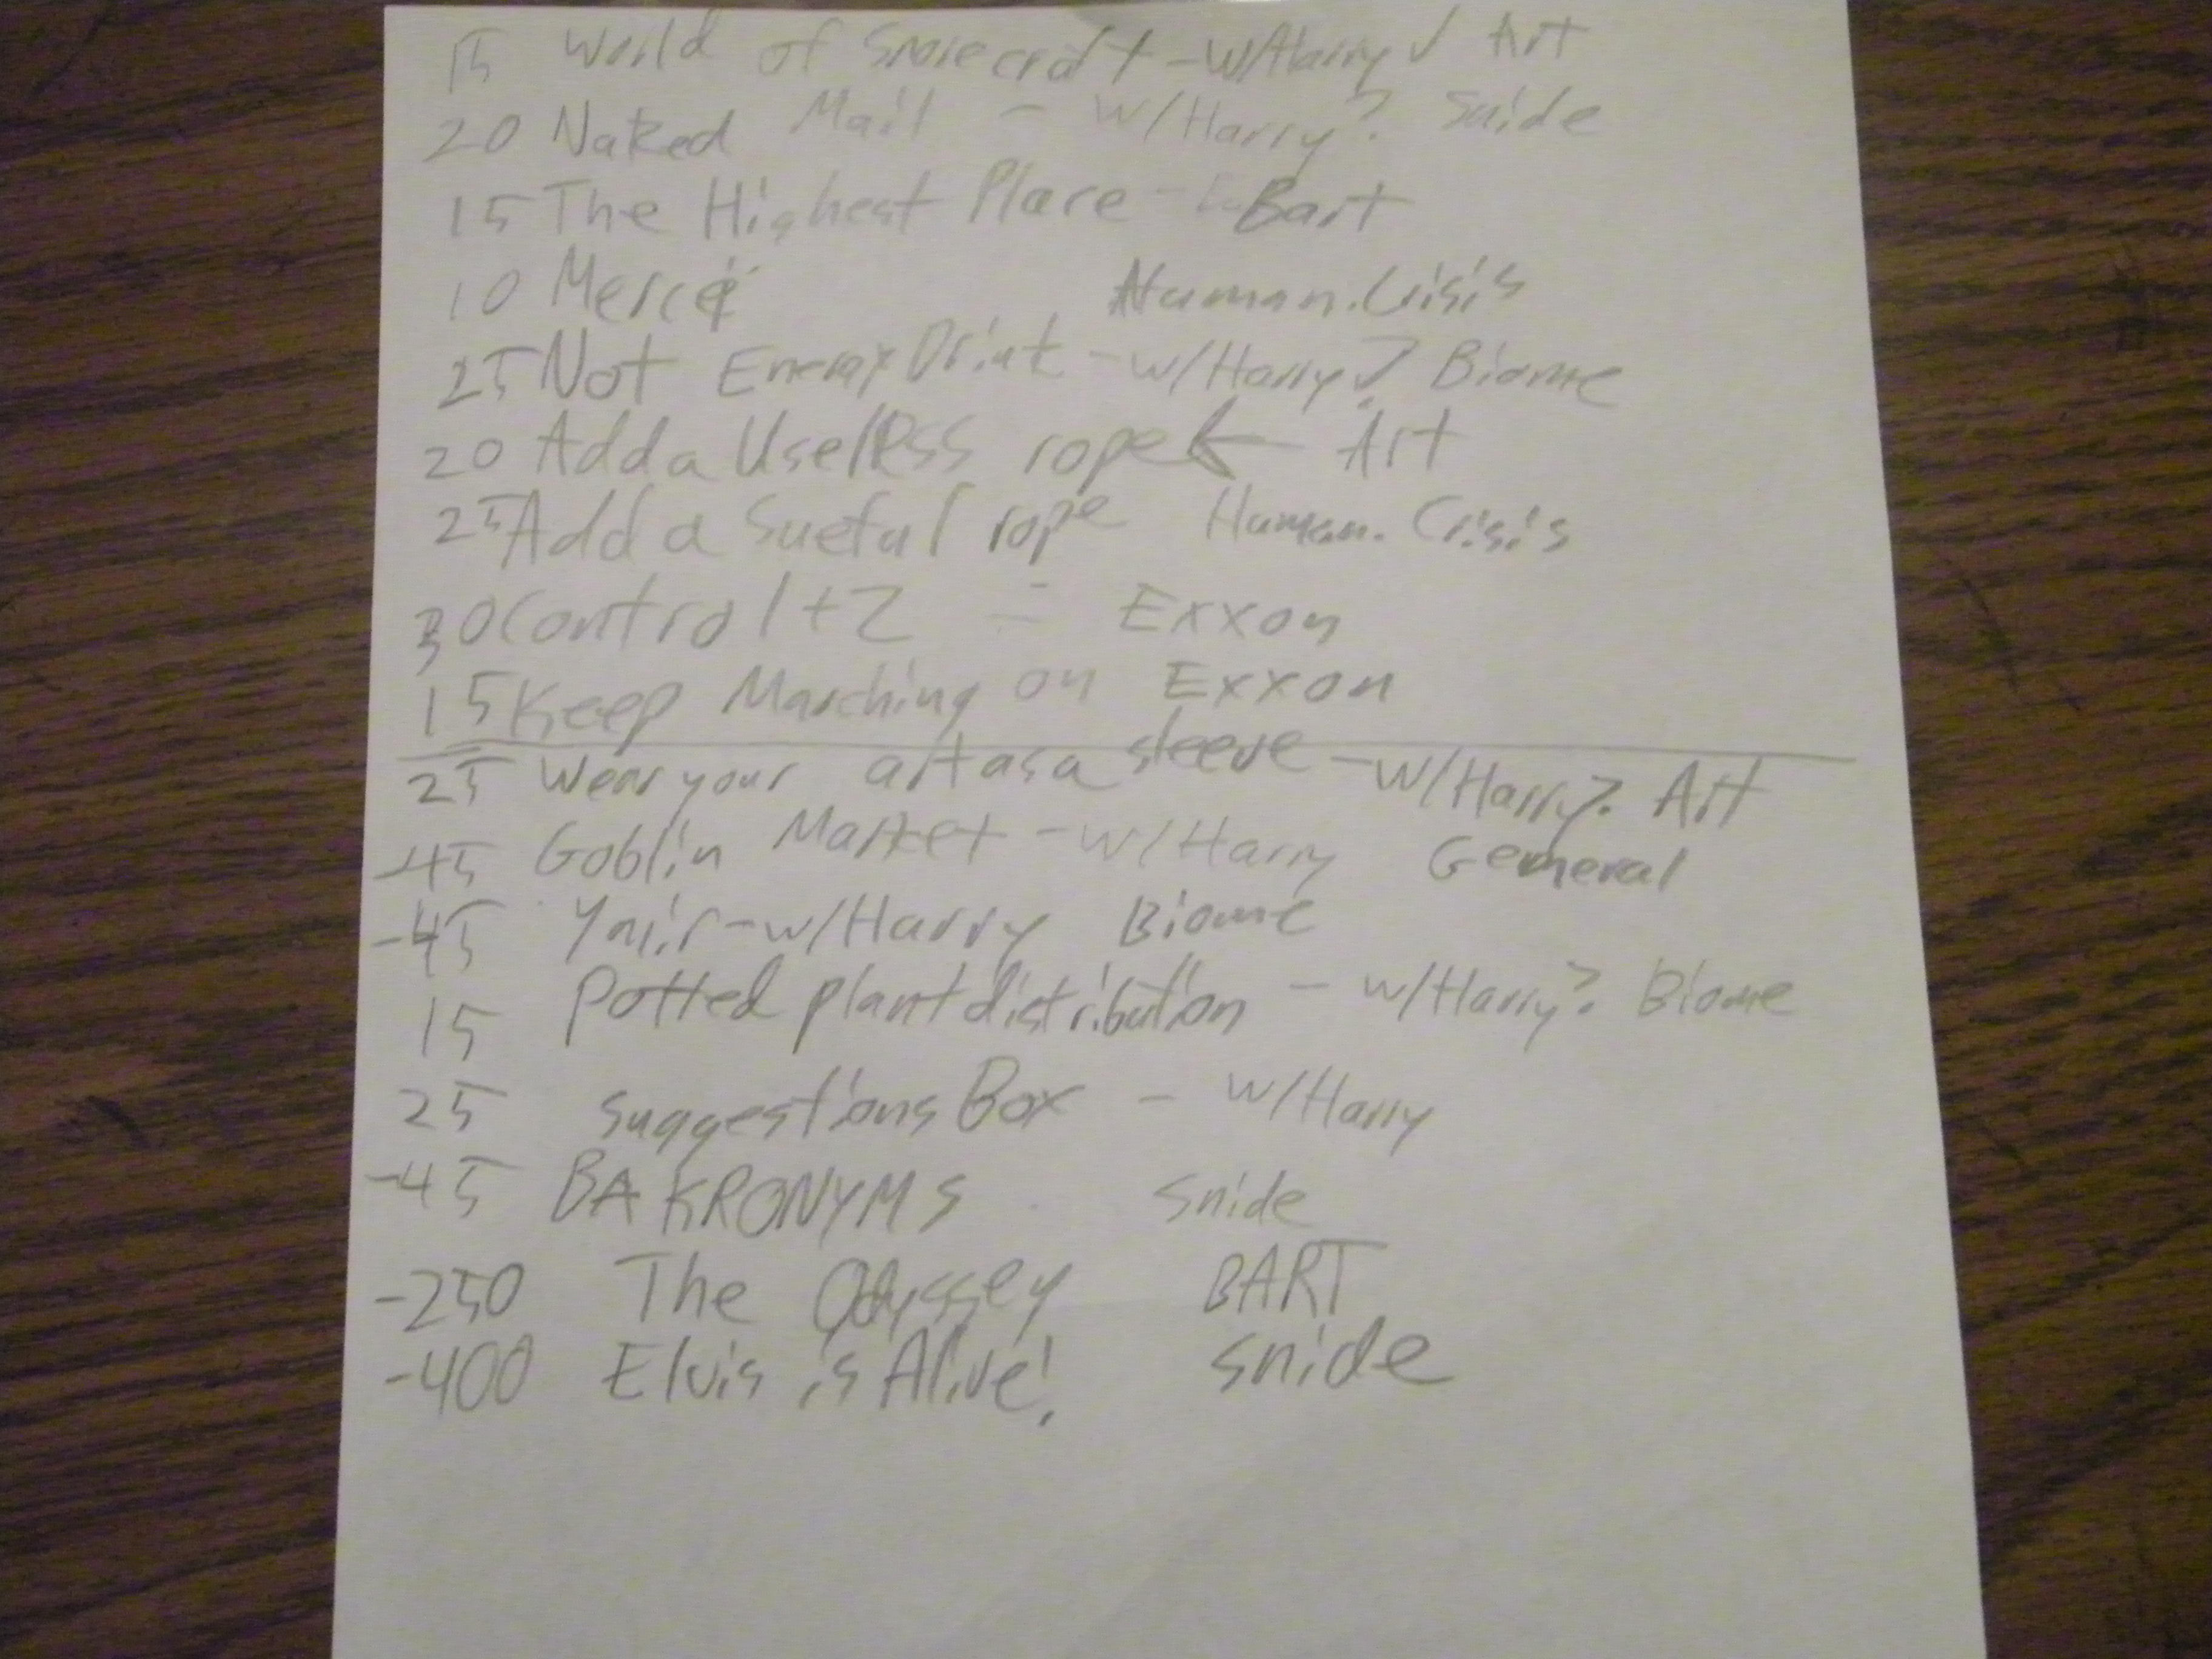 15 World of Snorecraft - w/Harry ✓ Art
20 Naked Mail - w/Harry? Snide
15 The Highest Place - Bart
10 Human. Crisis
25 Not Energy Drink - w/Harry? Biome
20 Add a Useless rope ← Art
25 Add a Sueful rope Human. Crisis
30 Control + Z - Exxon
15 Keep Marching on Exxon
25 Wear your art as a sleeve - w/Harry? Art
-45 Goblin Market - w/Harry General
-45 - w/Harry Biome
15 Potted plant distribution - w/Harry? Biome
25 Suggestions Box - w/Harry
-45 BAKRONYMS Snide
-250 The Odyssey BART
-400 Elvis is Alive! Snide